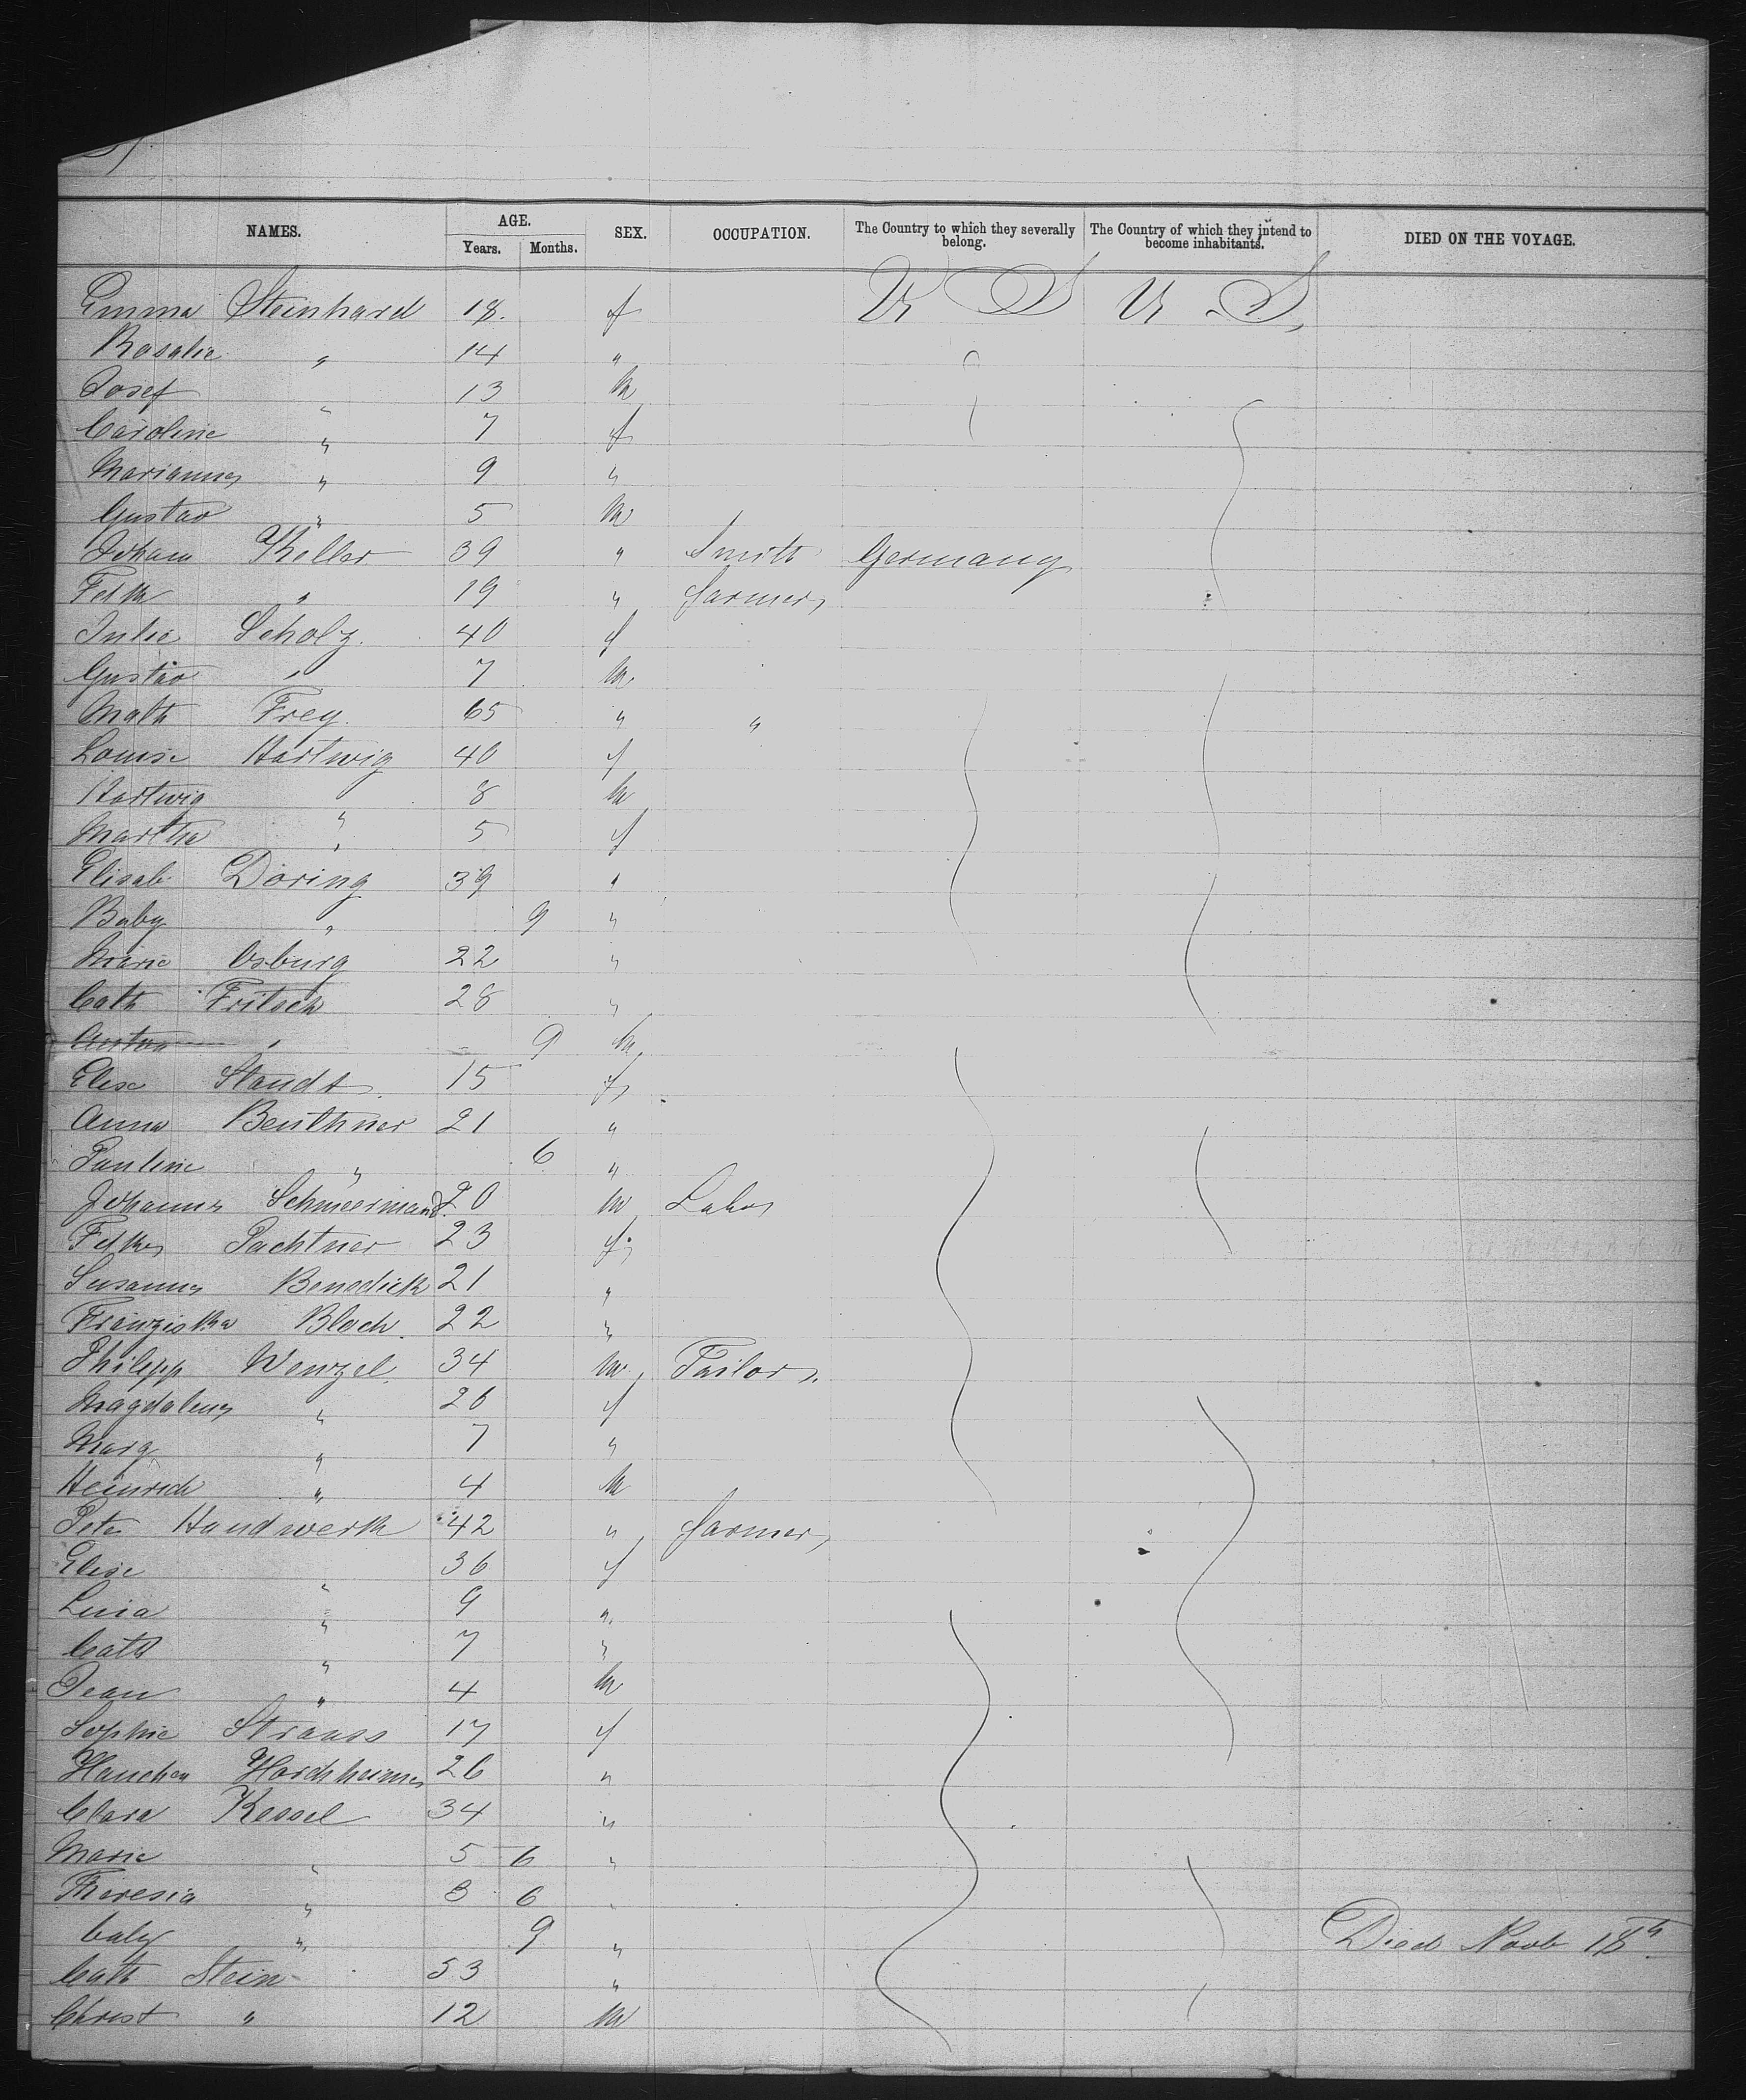 NAMES. AGE. SEX. OCCUPATION. The Country to which they severally belong. The Country of which they intend to become inhabitants. DIED ON THE VOYAGE.
Years. Months.
Emma Steinhard 18. f U S U S.
Rosalie " 14 "
Josef " 13 m
Caroline " 7 f
Marianna " 9 "
Gustav " 5 m
Johann Keller 39 " Smith Germany
Fedk " 19 " farmer
Julie Scholz. 40 f
Gustav " 7 m
Math Frey. 65 " "
Louise Hartwig 40 f
Hartwig " 8 m
Martha " 5 f
Elisab. Döring 39 "
Baby " 9 "
Marie Osburg 22 "
Cath Fritsch 28 "
Anton " 9 m
Elise Staudt 15 f
Anna Beuthner 21 "
Pauline " 6 "
Johannes Schmeermand 20 m Labor
Pachtner 23 f
Susanna Benedick 21 "
Franziska Bloch. 22 "
Philipp Wenzel. 34 m Tailor
Magdalena " 26 f
Marg " 7 "
Heinrich " 4 m
Peter Handwerk 42 " farmer
Elise " 36 f
Luia " 9 "
Cath " 7 "
Jean " 4 m
Sophie Strauss 17 f
Hanchen Hordhheimer 26 "
Clara Kessel 34 "
Marie " 5 6 "
Theresia " 3 6 "
baby " 9 " Died Novb 18th.
Cath Stein 53 "
Christ " 12 m